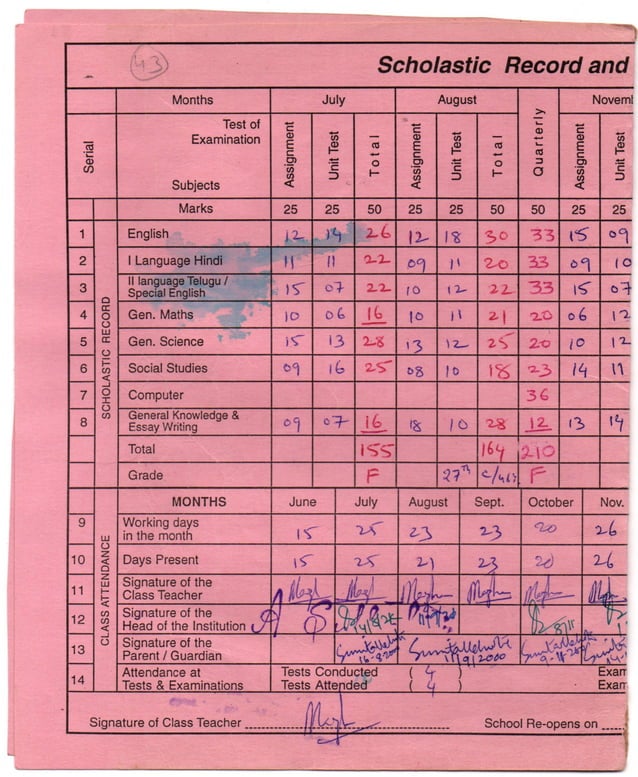 43
Scholastic Record and
Months July August Novem
Serial Test of Examination Subjects Assignment Unit Test Total Assignment Unit Test Total Quarterly Assignment Unit Test
Marks 25 25 50 25 25 50 50 25 25
SCHOLASTIC RECORD
1 English 12 14 26 12 18 30 33 15 09
2 I Language Hindi 11 11 22 09 11 20 33 09 10
3 II language Telugu / Special English 15 07 22 10 12 22 33 15 07
4 Gen. Maths 10 06 16 10 11 21 20 06 12
5 Gen. Science 15 13 28 13 12 25 20 10 12
6 Social Studies 09 16 25 08 10 18 23 14 11
7 Computer 36
8 General Knowledge & Essay Writing 09 07 16 18 10 28 12 13 14
Total 155 164 210
Grade F 27th F
CLASS ATTENDANCE
MONTHS June July August Sept. October Nov.
9 Working days in the month 15 25 23 23 20 26
10 Days Present 15 25 21 23 20 26
11 Signature of the Class Teacher
12 Signature of the Head of the Institution
13 Signature of the Parent / Guardian
14 Attendance at Tests & Examinations Tests Conducted ( 4 ) Exam
Tests Attended ( 4 ) Exam
Signature of Class Teacher School Re-opens on